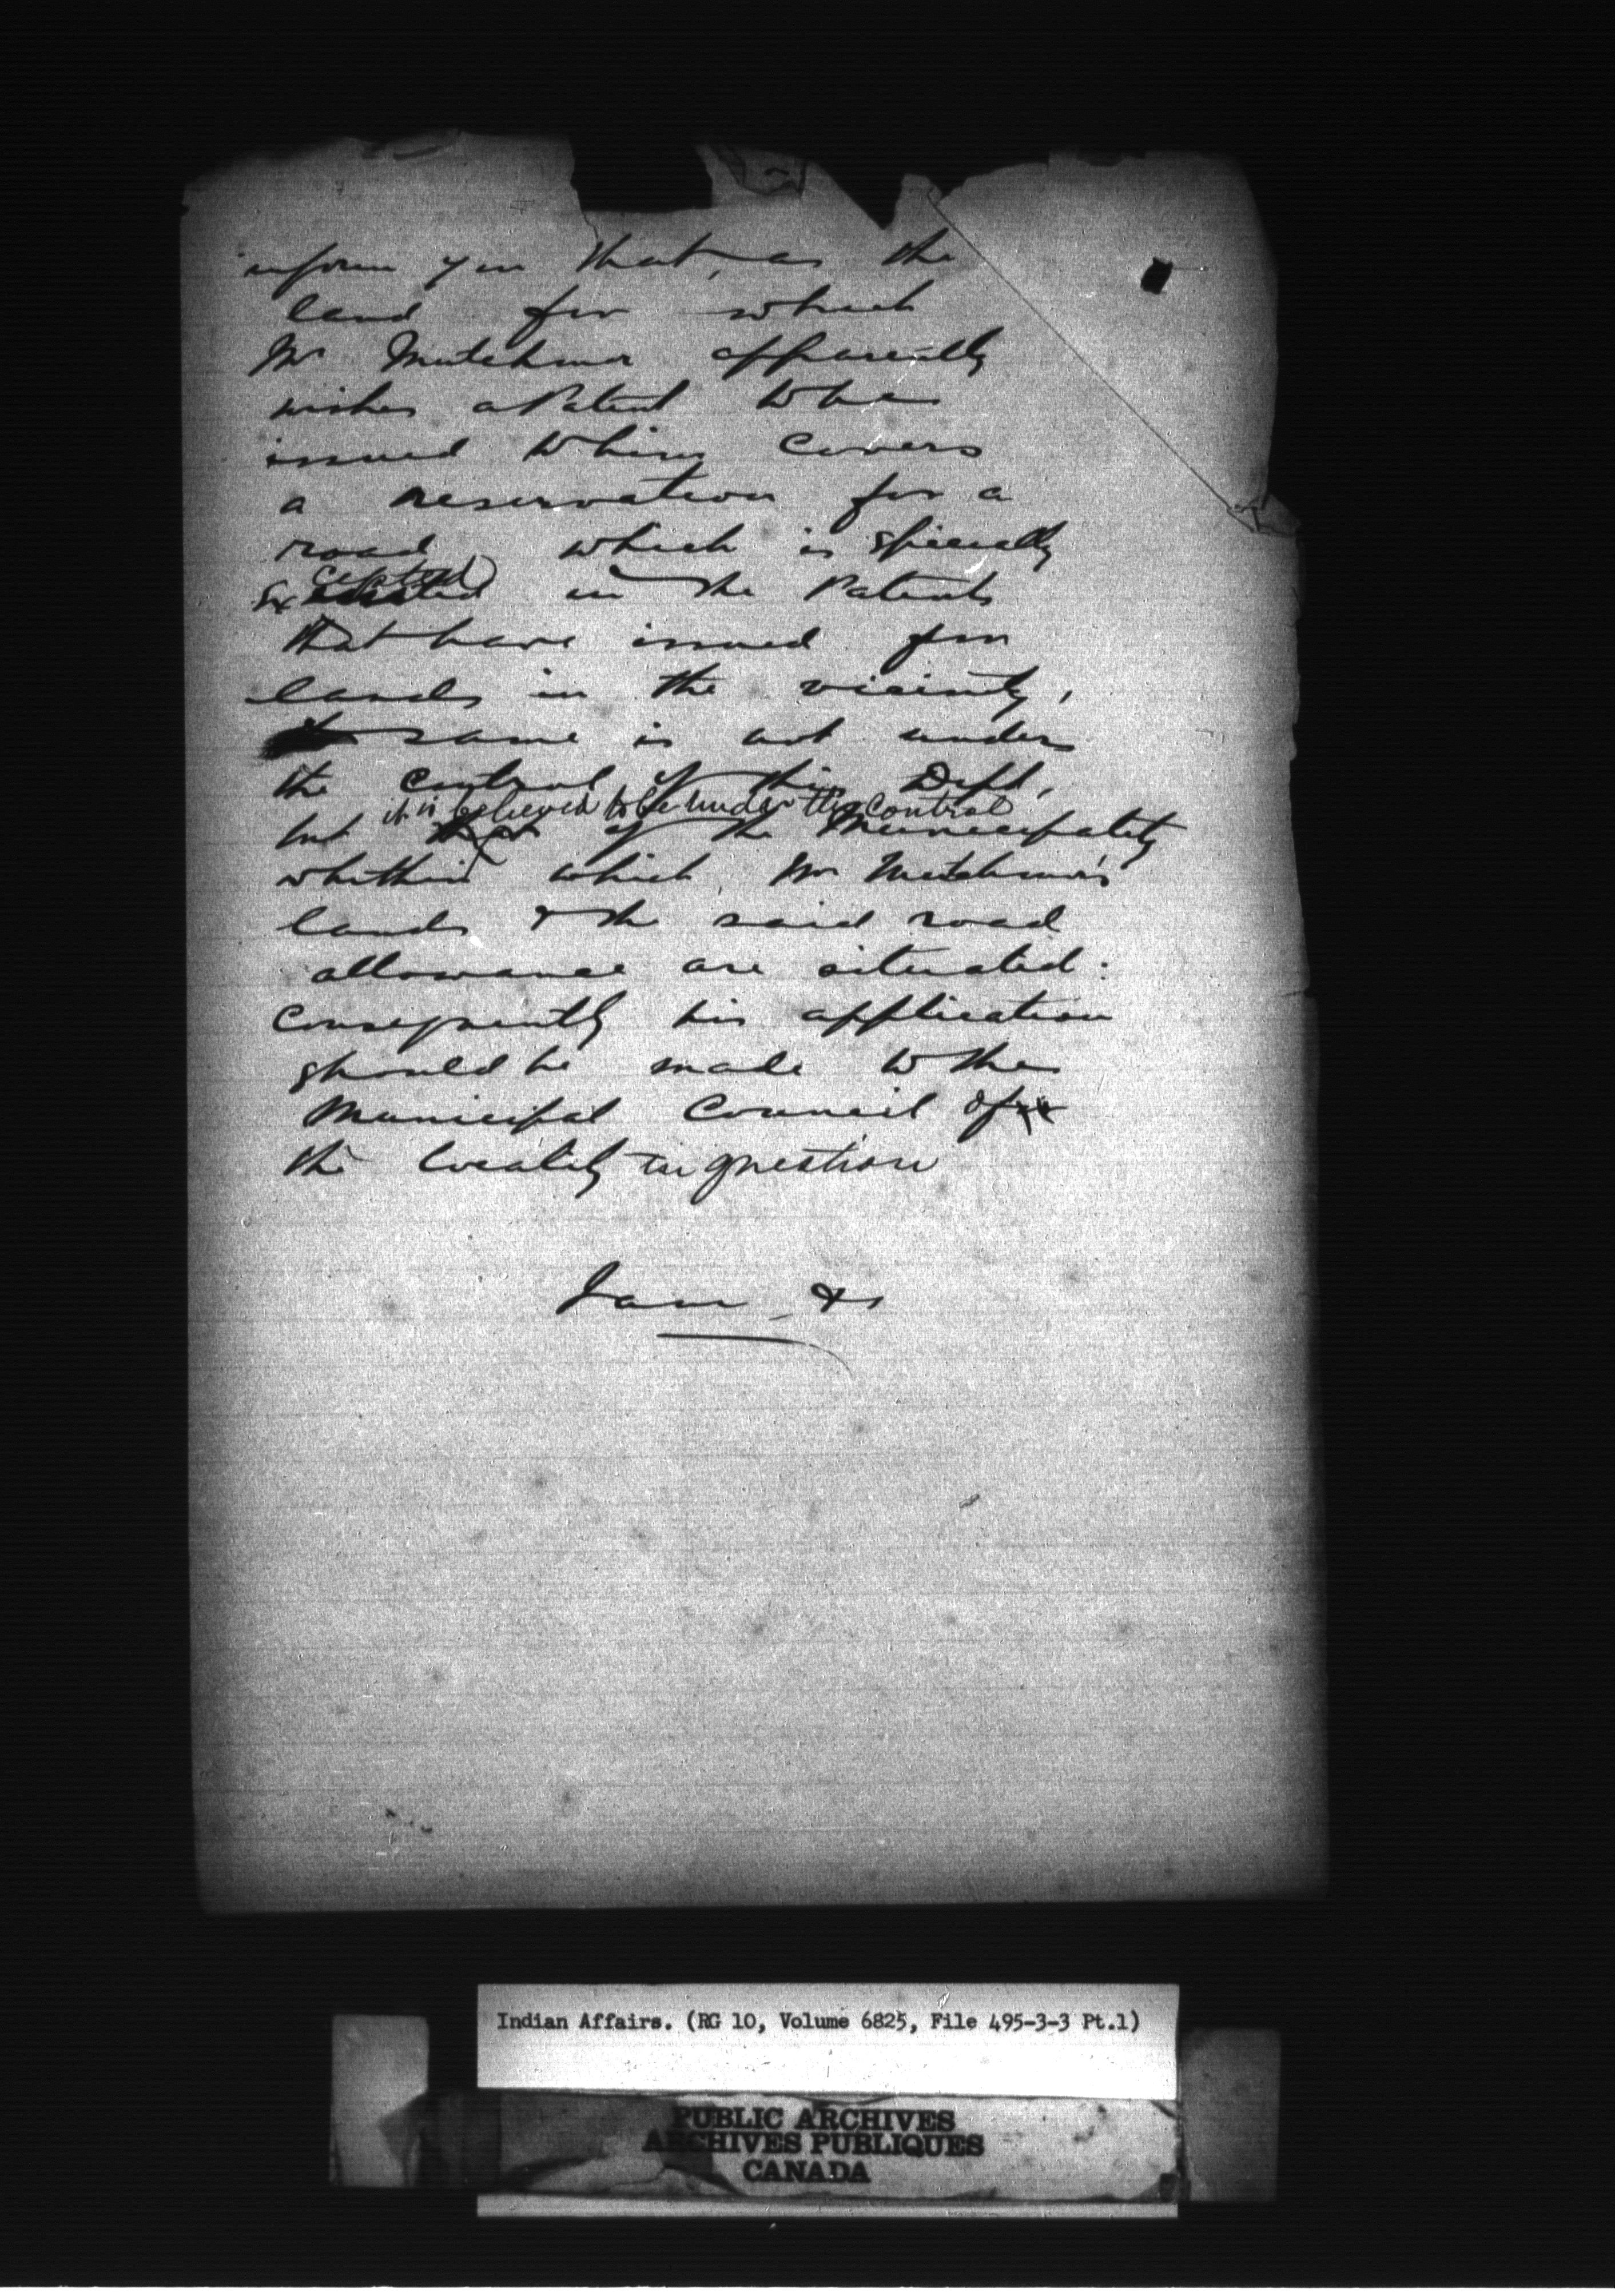 inform you that, as the
land for which
Mr Mutchmor apparently
wishes a Patent to be
issued to him covers
a reservation for a
road which is specially
excepted in the Patents
that have issued for
lands in the vicinity,
same is not under
the control of this Dept,
it is believed to be under the control
but of the Municipality
whithin which Mr Mutchmor's
lands & the said road
allowance are situated:
Consequently his application
should be made to the
Municipal Council of
the locality in question
I am &c
Indian Affairs. (RG 10, Volume 6825, File 495-3-3 Pt.1)
PUBLIC ARCHIVES
ARCHIVES PUBLIQUES
CANADA